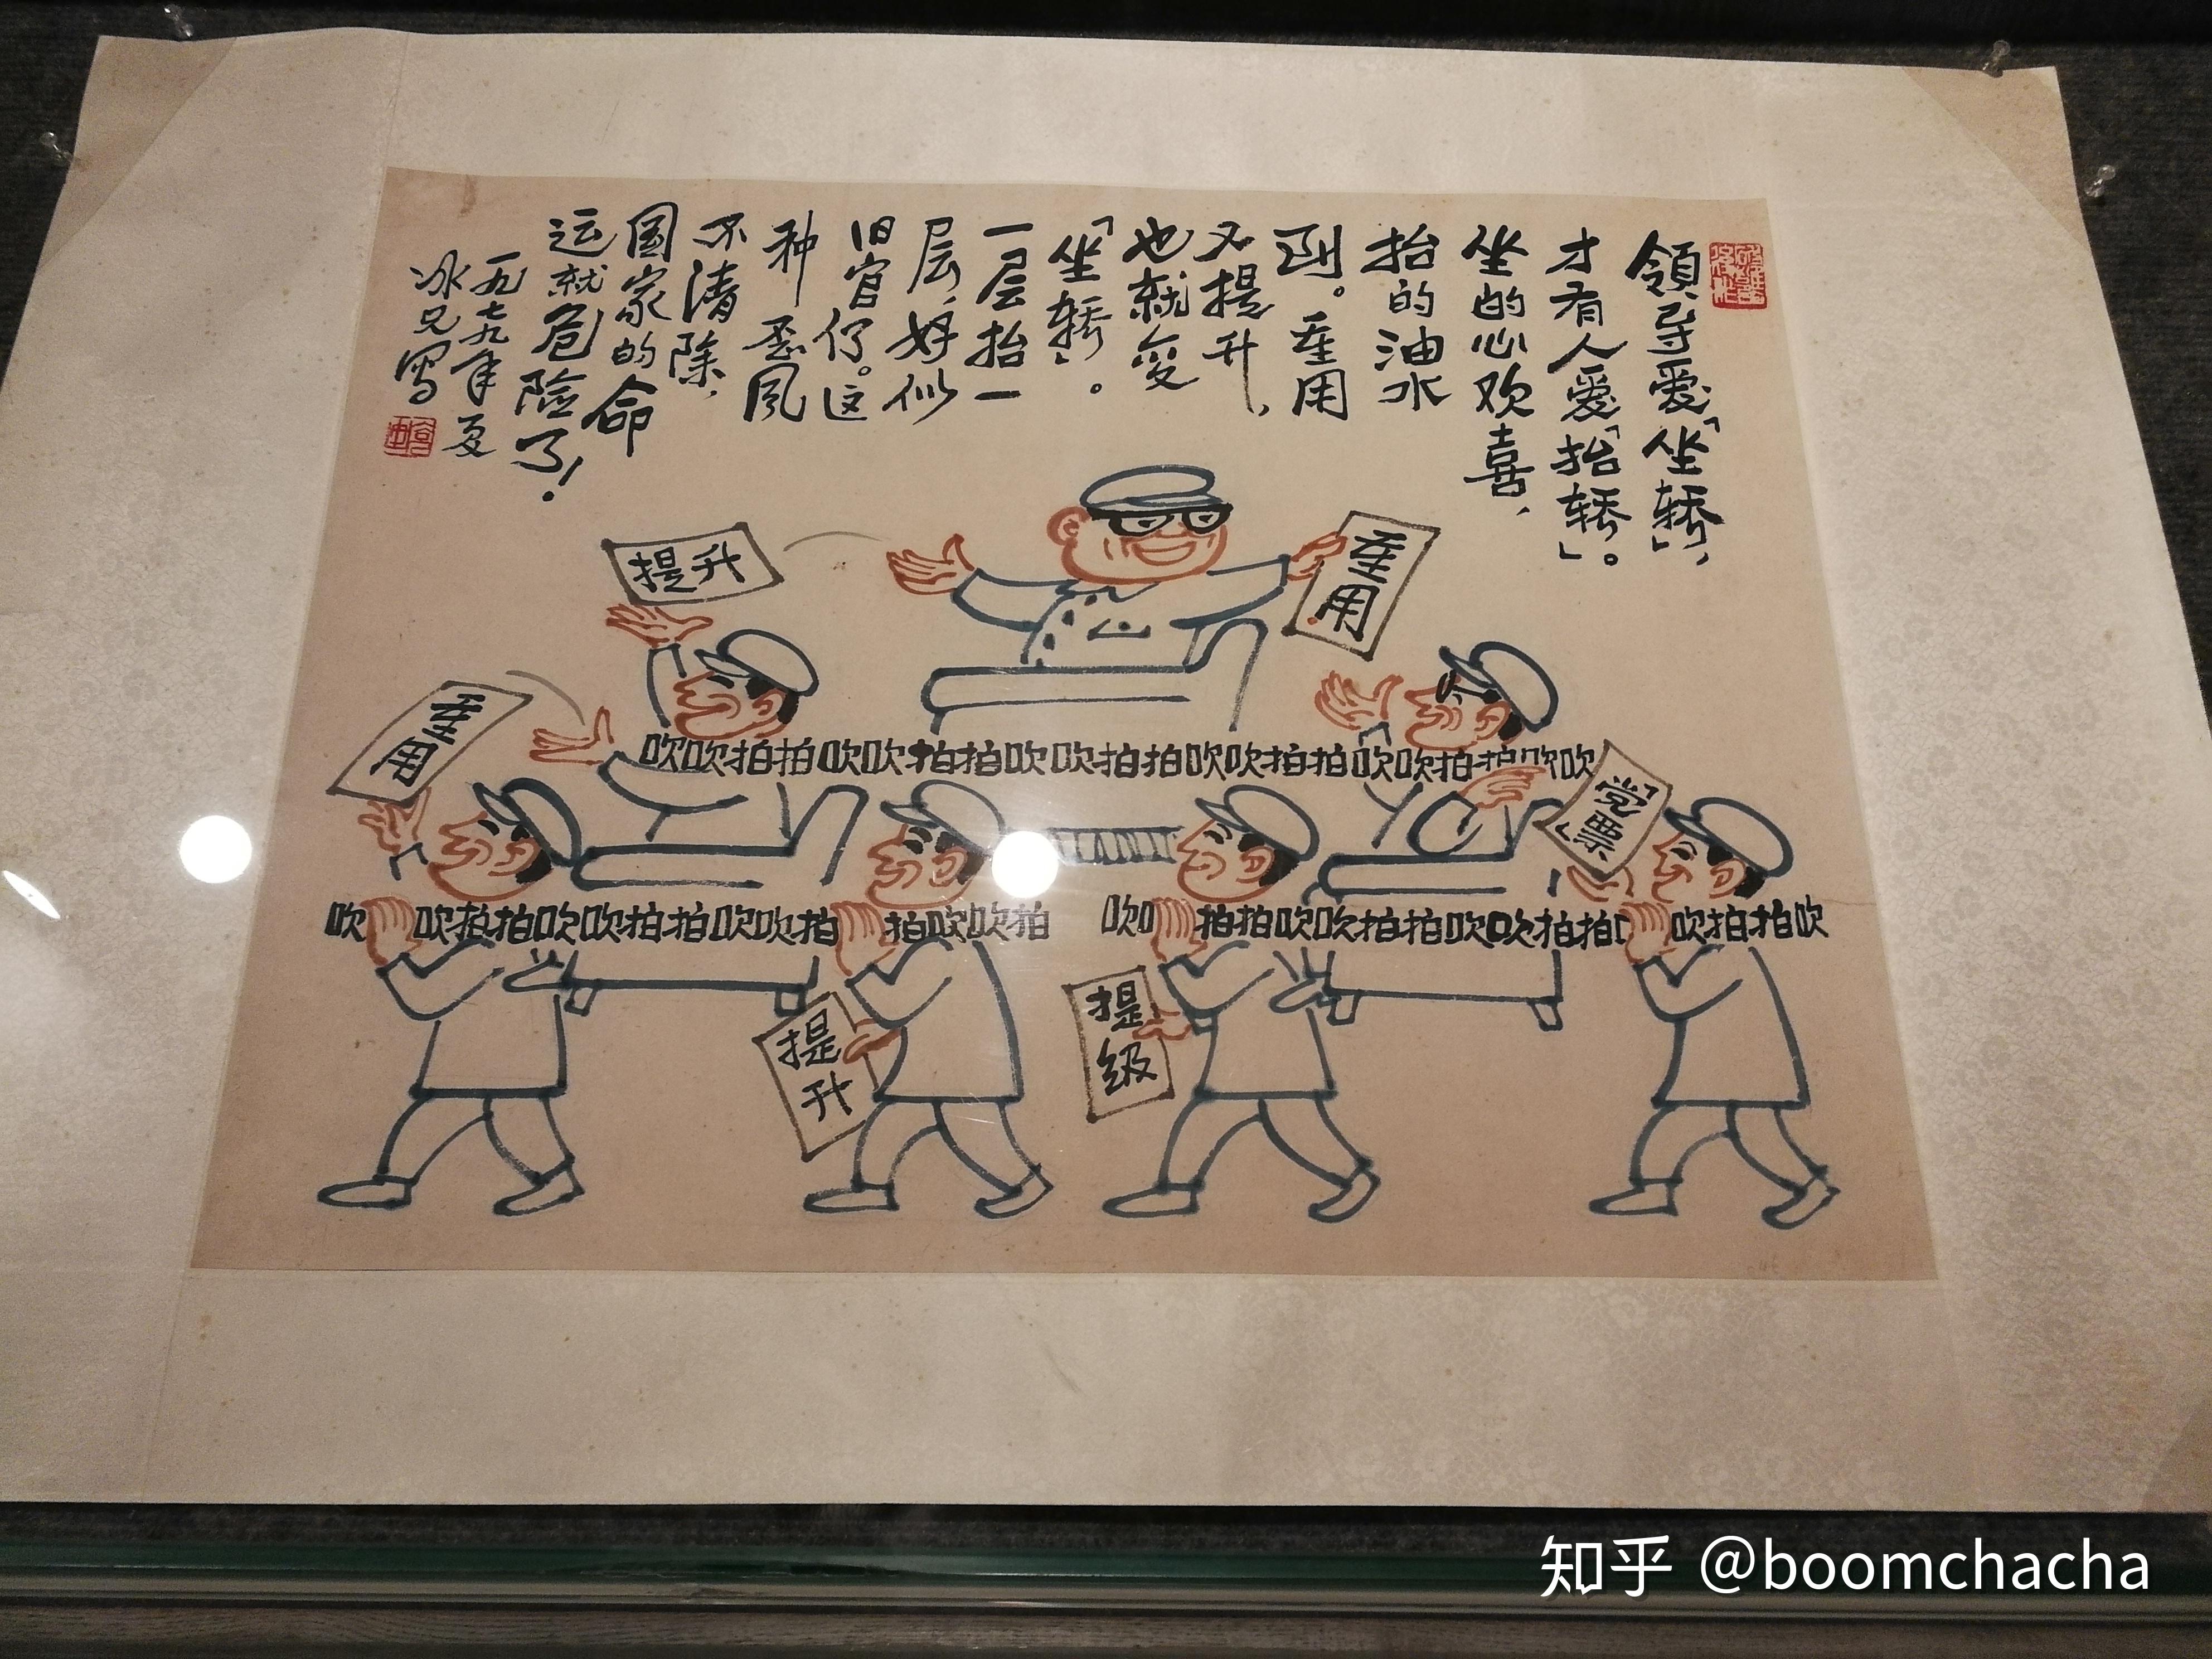 領导爱「坐轿」，
才有人爱「抬轿」。
坐的心欢喜，
抬的油水
到。重用
又提升，
也就变
「坐轿」。
一层抬一
层，好似
旧官仔。这
种歪风
不清除，
国家的命
运就危险了！
一九七九年夏
冰兄写
提升
重用
重用
吹吹拍拍吹吹拍拍吹吹拍拍吹吹拍拍吹吹拍拍吹吹
「党票」
吹吹拍拍吹吹拍拍吹吹拍拍吹吹拍
吹吹拍拍吹吹拍拍吹吹拍拍吹吹拍拍吹
提升
提级
知乎 @boomchacha